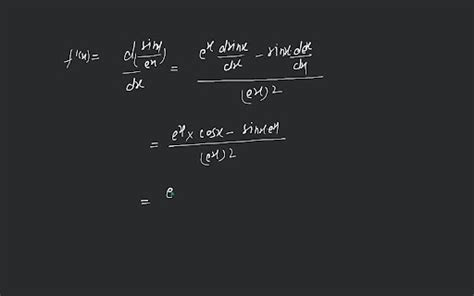 f'(x) = d(sinx/eˣ)/dx = (eˣ dsinx/dx - sinx · deˣ/dx)/(eˣ)2
= (eˣ × cosx - sinx eˣ)/(eˣ)2
= e